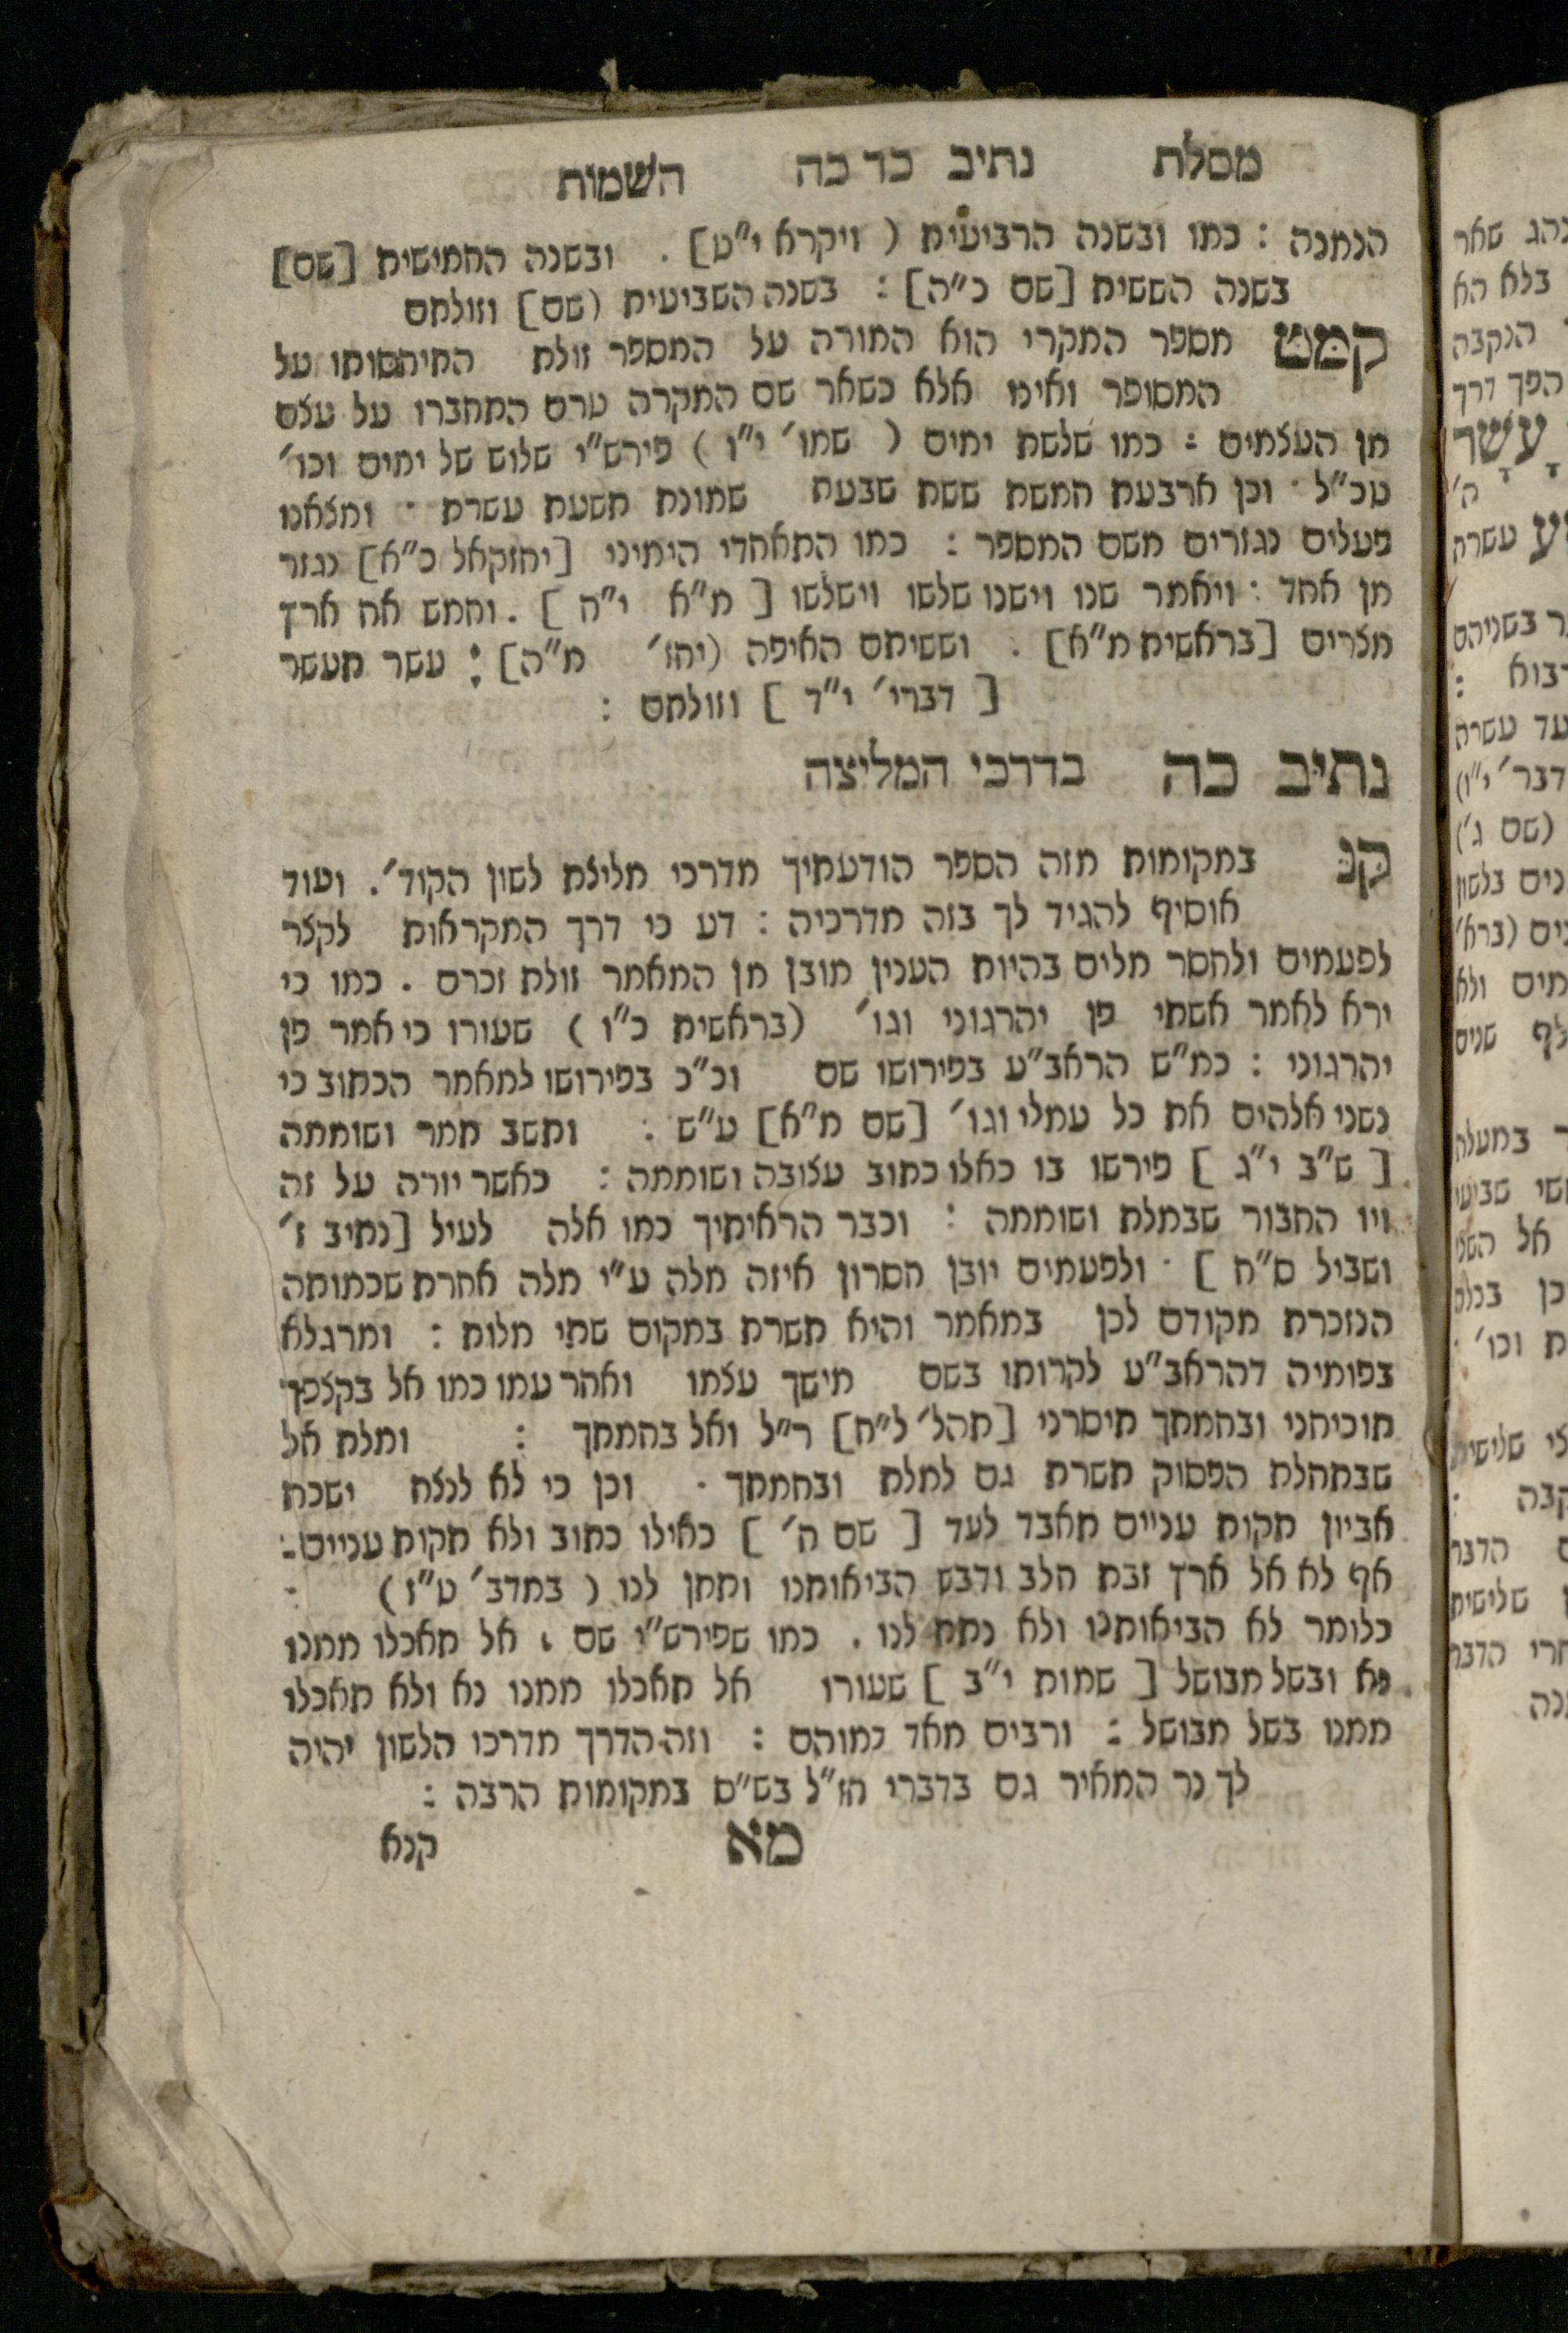 מסלת נתיב כד כה השמות
הנמנה : כמו ובשנה הרביעית ( ויקרא י"ט] . ובשנה החמישית [שם]
בשנה הששית [שם כ"ה] : בשנה השביעית (שם] וזולתם
קמט מספר המקרי הוא המורה על המספר זולת התיחסותו על
המסופר ואינו אלא כשאר שם המקרה טרם התחברו על עצם
מן העצמים : כמו שלשת ימים ( שמו' י"ו ) פירש"י שלוש של ימים וכו'
עכ"ל · וכן ארבעת חמשת ששת שבעת שמונת תשעת עשרת · ומצאנו
פעלים נגזרים משם המספר : כמו התאחדי הימיני [יחזקאל כ"א] נגזר
מן אחד : ויאמר שנו וישנו שלשו וישלשו [ מ"א י"ח ] . וחמש את ארץ
מצרים [בראשית מ"א] . וששיתם האיפה (יחז' מ"ה] : עשר תעשר
[ דברי' י"ד ] וזולתם :
נתיב כה בדרכי המליצה
קנ במקומות מזה הספר הודעתיך מדרכי מליצת לשון הקוד' . ועוד
אוסיף להגיד לך בזה מדרכיה : דע כי דרך המקראות לקצר
לפעמים ולחסר מלים בהיות הענין מובן מן המאמר זולת זכרם . כמו כי
ירא לאמר אשתי פן יהרגוני וגו' (בראשית כ"ו ) שעורו כי אמר פן
יהרגוני : כמ"ש הראב"ע בפירושו שם וכ"כ בפירושו למאמר הכתוב כי
נשני אלהים את כל עמלי וגו' [שם מ"א] ע"ש : ותשב תמר ושוממה
[ ש"ב י"ג ] פירשו בו כאלו כתוב עצובה ושוממה : כאשר יורה על זה
ויו החבור שבמלת ושוממה : וכבר הראיתיך כמו אלה לעיל [נתיב ז'
ושביל ס"ח ] · ולפעמים יובן חסרון איזה מלה ע"י מלה אחרת שכמותה
הנזכרת מקודם לכן במאמר והיא משרת במקום שתי מלות : ומרגלא
בפומיה דהראב"ע לקרותו בשם מישך עצמו ואחר עמו כמו אל בקצפך
תוכיחני ובחמתך תיסרני [תהל' ל"ח] ר"ל ואל בחמתך : ומלת אל
שבתחלת הפסוק משרת גם למלת ובחמתך · וכן כי לא לנצח ישכח
אביון תקות עניים תאבד לעד [ שם ה' ] כאילו כתוב ולא תקות עניים :
אף לא אל ארץ זבת חלב ודבש הביאותנו ותתן לנו ( במדב' ט"ז ) :
כלומר לא הביאותנו ולא נתת לנו . כמו שפירש"י שם . אל תאכלו ממנו
נא ובשל מבושל [ שמות י"ב ] שעורו אל תאכלו ממנו נא ולא תאכלו
ממנו בשל מבושל : ורבים מאד כמוהם : וזה הדרך מדרכי הלשון יהיה
לך נר המאיר גם בדברי חז"ל בש"ס במקומות הרבה :
מא קנא
נהג שאר
בלא הא
הנקבה
הפך דרך
עָשָׂר
ה'
עשרת
בשניהם
רבוא :
עד עשרה
דבר' י"ו)
(שם ג')
בלשון
(ברא'
ולא
שנים
במעלת
שביעי
אל השני
כן בכלם
וכו' ·
שלישית
הדבר
שלישית
הדבר